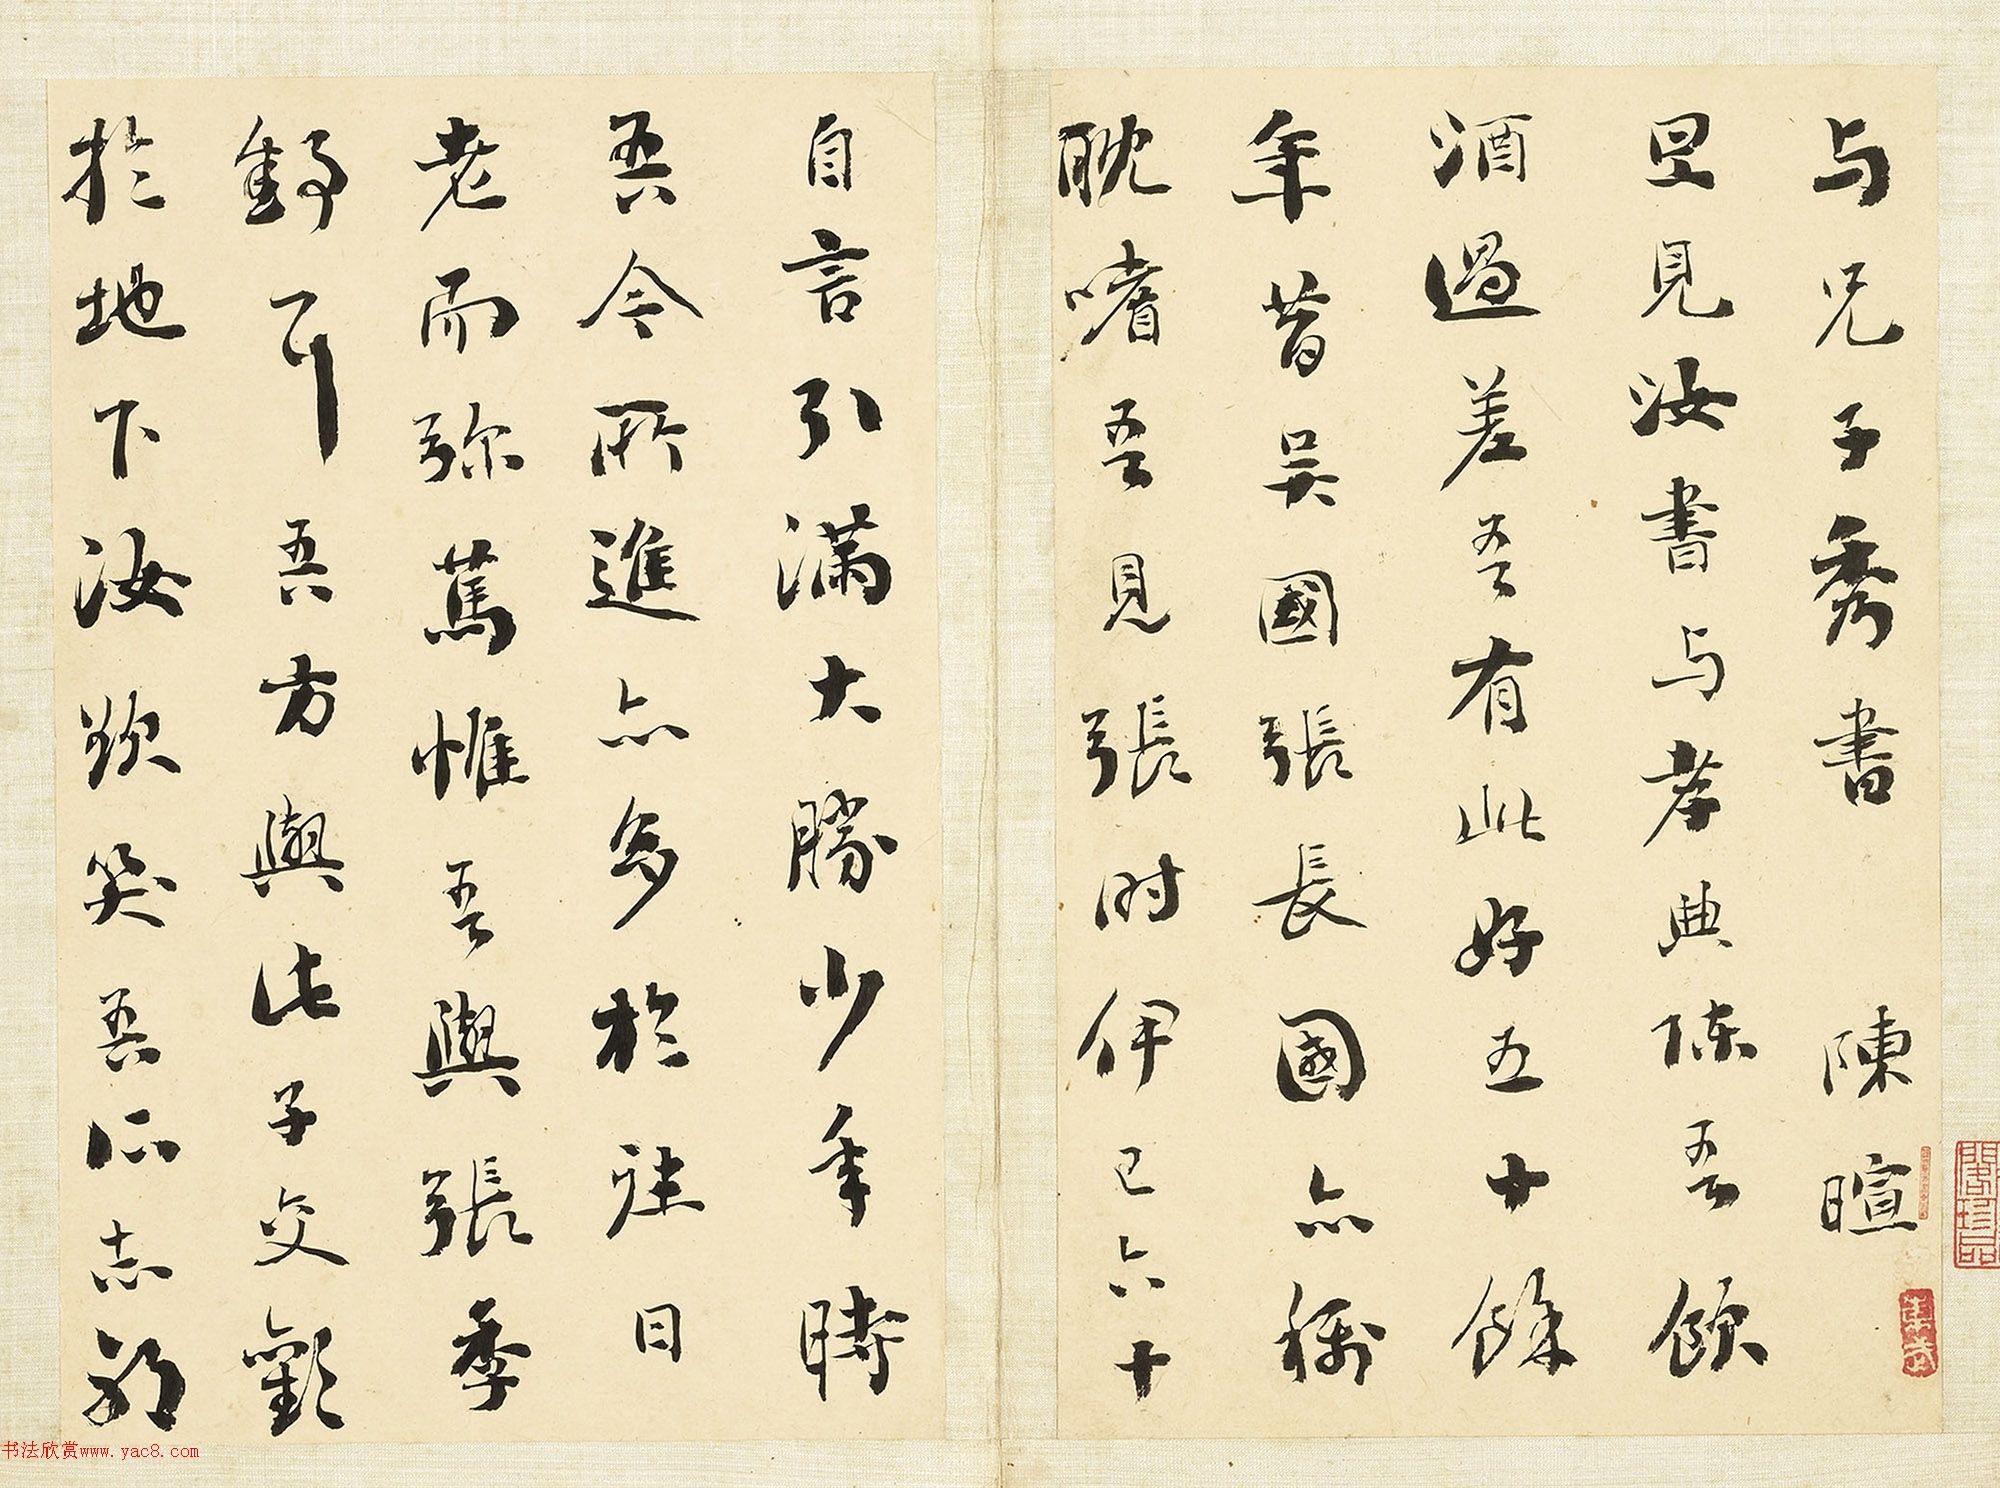 与兄子秀書 陳暄
旦見汝書与孝典陳吾飲
酒過差吾有此好五十餘
年昔吳國張長國亦稱
耽嗜吾見張时伊已六十
自言引滿大勝少年時
吾今所進亦多於往日
老而弥篤惟吾與張季
舒耳吾方與此子交歡
於地下汝欲笑吾所志邪
閣珍品
书法欣赏www.yac8.com